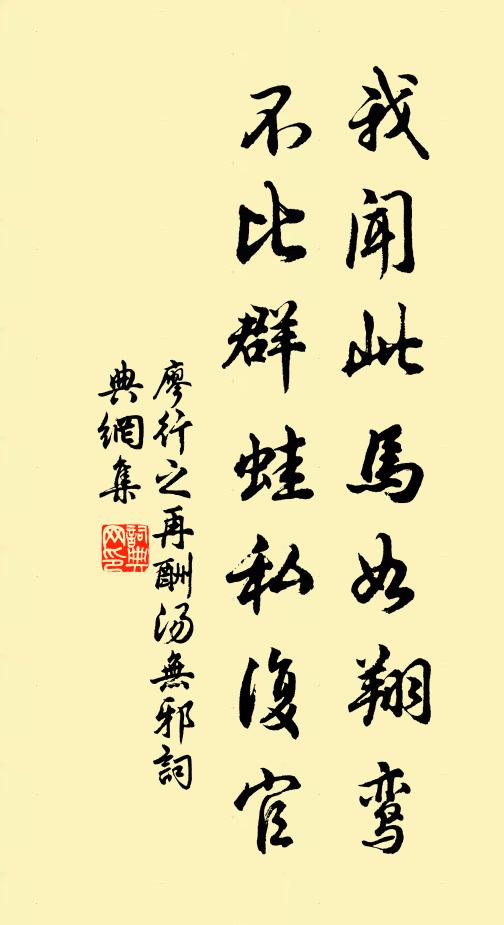 我闻此馬如翔鸾
不比群蛙私復官
廖行之再酬汤無邪詞
典網集
詞典网印